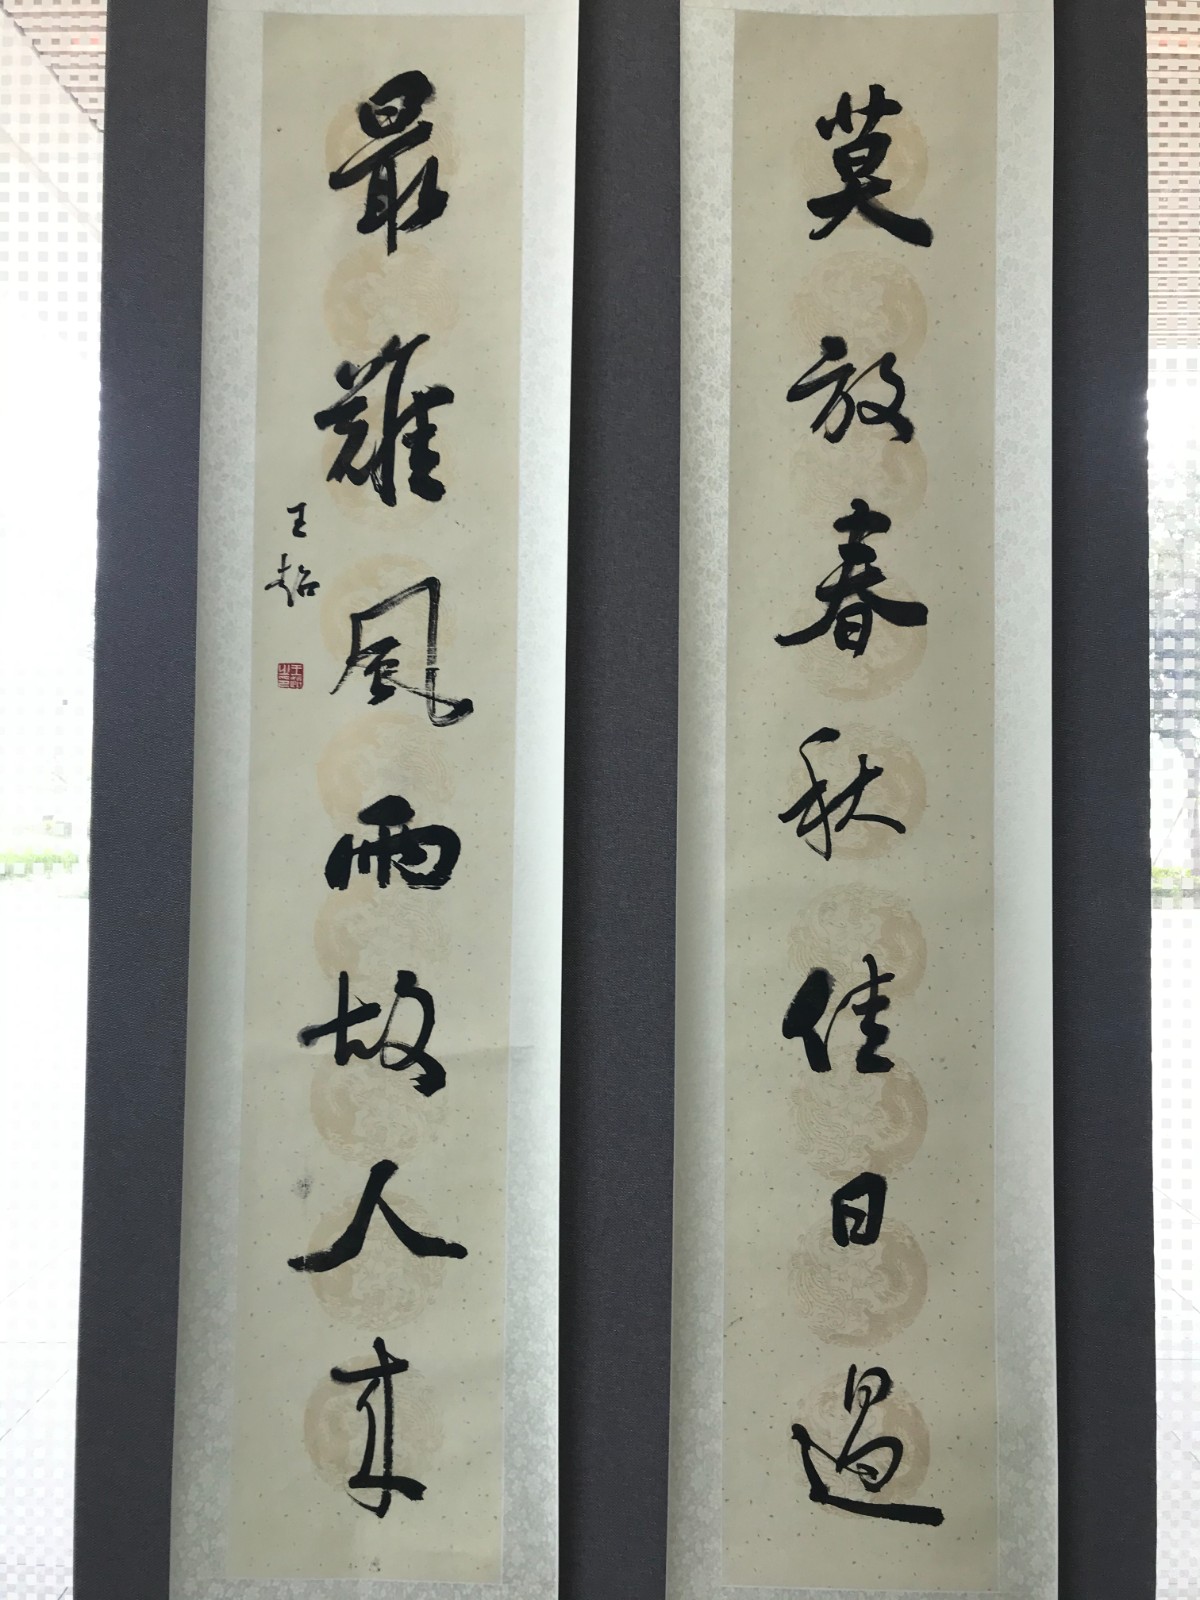 莫放春秋佳日過
最難風雨故人来
王超